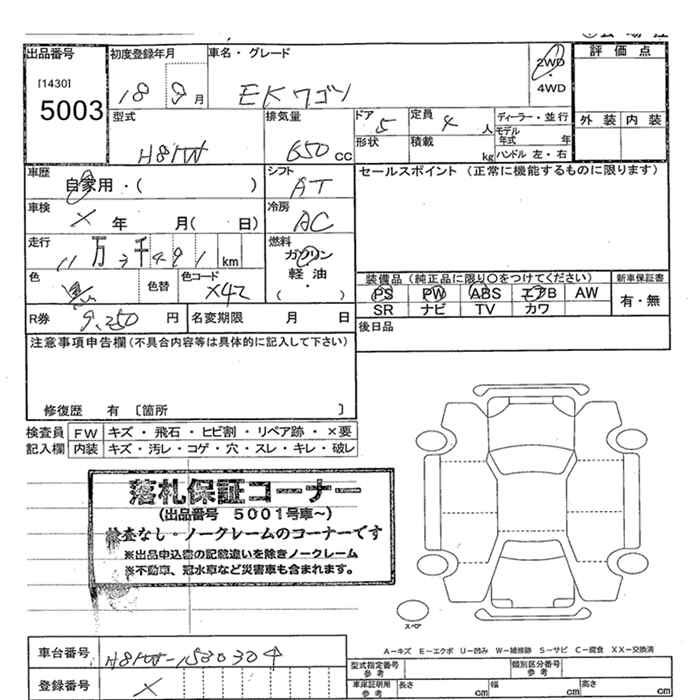 出品番号 初度登録年月 車名・グレード 評価点
[1430]
5003 18 9月 EKワゴン 2WD・4WD
型式 排気量 ドア 定員 ディーラー・並行 外装 内装
H81W 650cc 5 4人 モデル年式 年
形状 積載 kg ハンドル 左・右
車歴 シフト セールスポイント (正常に機能するものに限ります)
自家用・( ) AT
車検 冷房
× 年 月( 日) AC
走行 燃料
11万3千491km ガソリン・軽油・( )
色 色替 色コード 装備品 (純正品に限り○をつけてください) 新車保証書
黒 X42 PS PW ABS エアB AW 有・無
SR ナビ TV カワ
R券 9,250円 名変期限 月 日 後日品
注意事項申告欄(不具合内容等は具体的に記入して下さい)
修復歴 有 [箇所 ]
検査員 FW キズ・飛石・ヒビ割・リペア跡・×要
記入欄 内装 キズ・汚レ・コゲ・穴・スレ・キレ・破レ
落札保証コーナー
(出品番号 5001号車~)
検査なし・ノークレームのコーナーです
※出品申込書の記載違いを除きノークレーム
※不動車、冠水車など災害車も含まれます。
スペア
A−キズ E−エクボ U−凹み W−補修跡 S−サビ C−腐食 XX−交換済
車台番号 H81W-1530304 型式指定番号 参考 類別区分番号 参考
登録番号 × 車庫証明用 参考 長さ cm 幅 cm 高さ cm